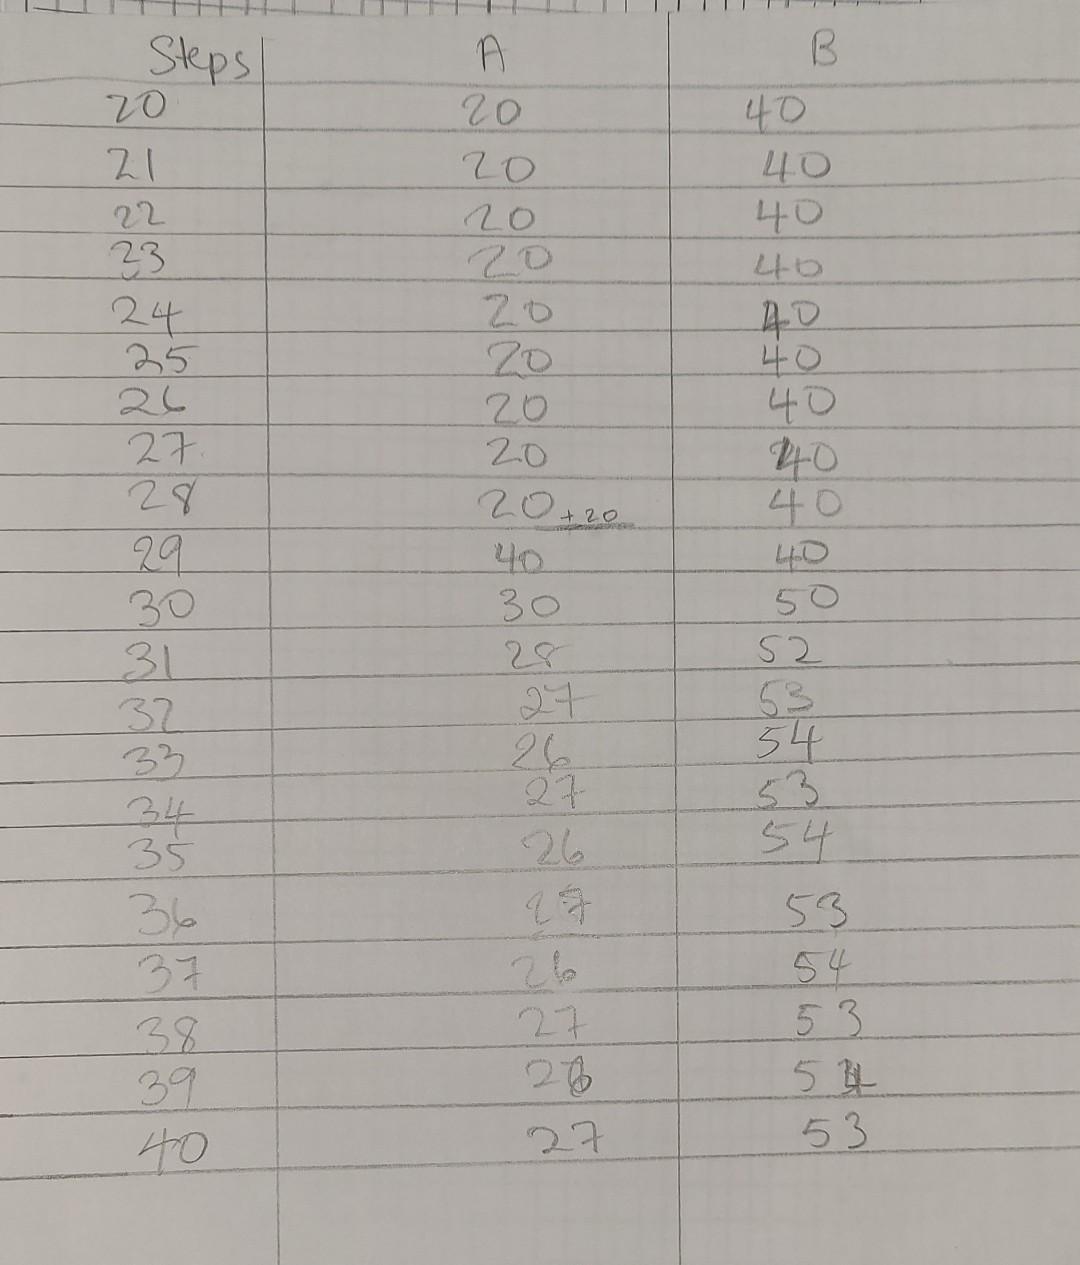 Steps A B
20 20 40
21 20 40
22 20 40
23 20 40
24 20 40
25 20 40
26 20 40
27 20 40
28 20 +20 40
29 40 40
30 30 50
31 28 52
32 27 53
33 26 54
34 27 53
35 26 54
36 27 53
37 26 54
38 27 53
39 26 54
40 27 53